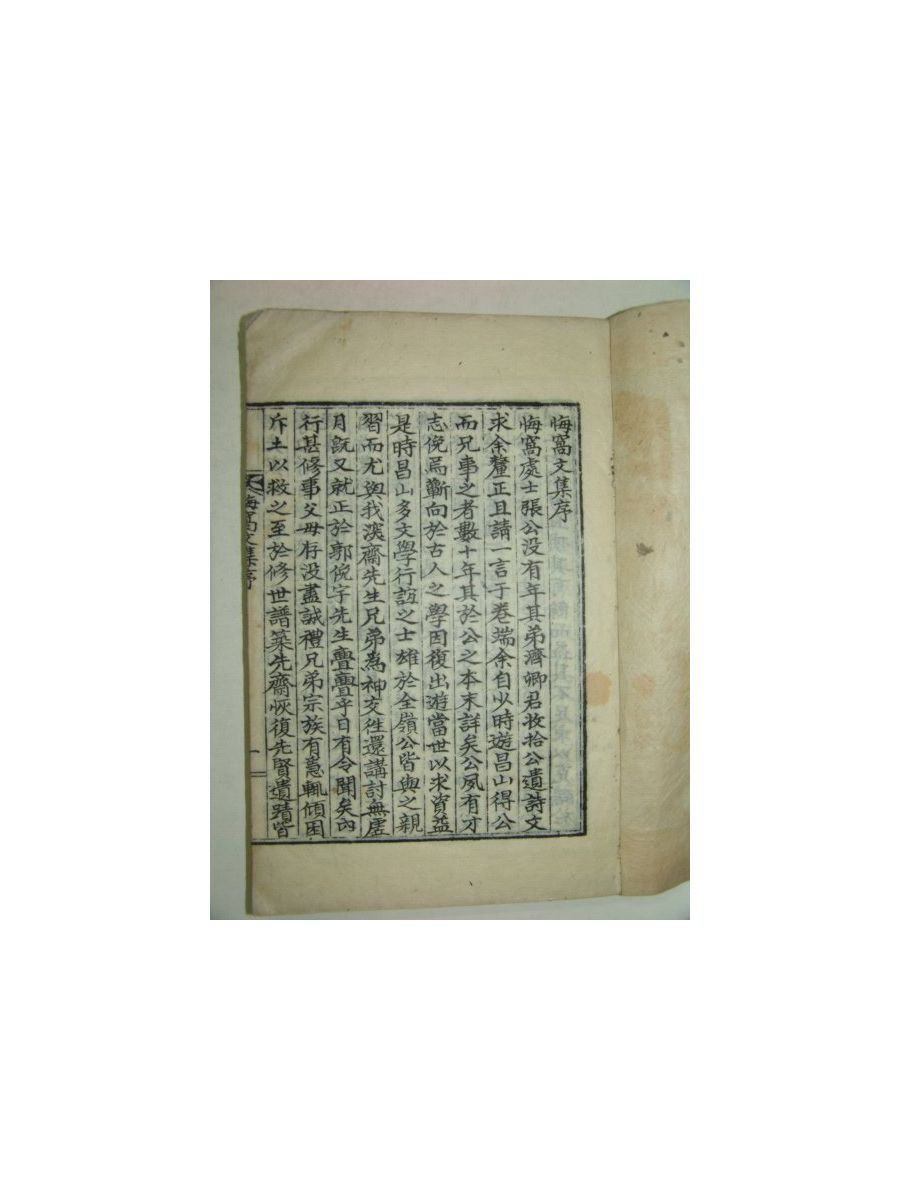 悔窩文集序
悔窩處士張公没有年其弟濟卿君收拾公遺詩文
求余釐正且請一言于卷端余自少時遊昌山得公
而兄事之者數十年其於公之本末詳矣公夙有才
志俛焉蘄向於古人之學因復出遊當世以求資益
是時昌山多文學行誼之士雄於全嶺公皆與之親
習而尤與我深齋先生兄弟為神交徃還講討無虛
月旣又就正於郭俛宇先生亹亹乎日有令聞矣内
行甚修事父母存没盡誠禮兄弟宗族有急輒傾囷
斥土以救之至於修世譜築先齋恢復先賢遺蹟皆
悔窩文集序
一